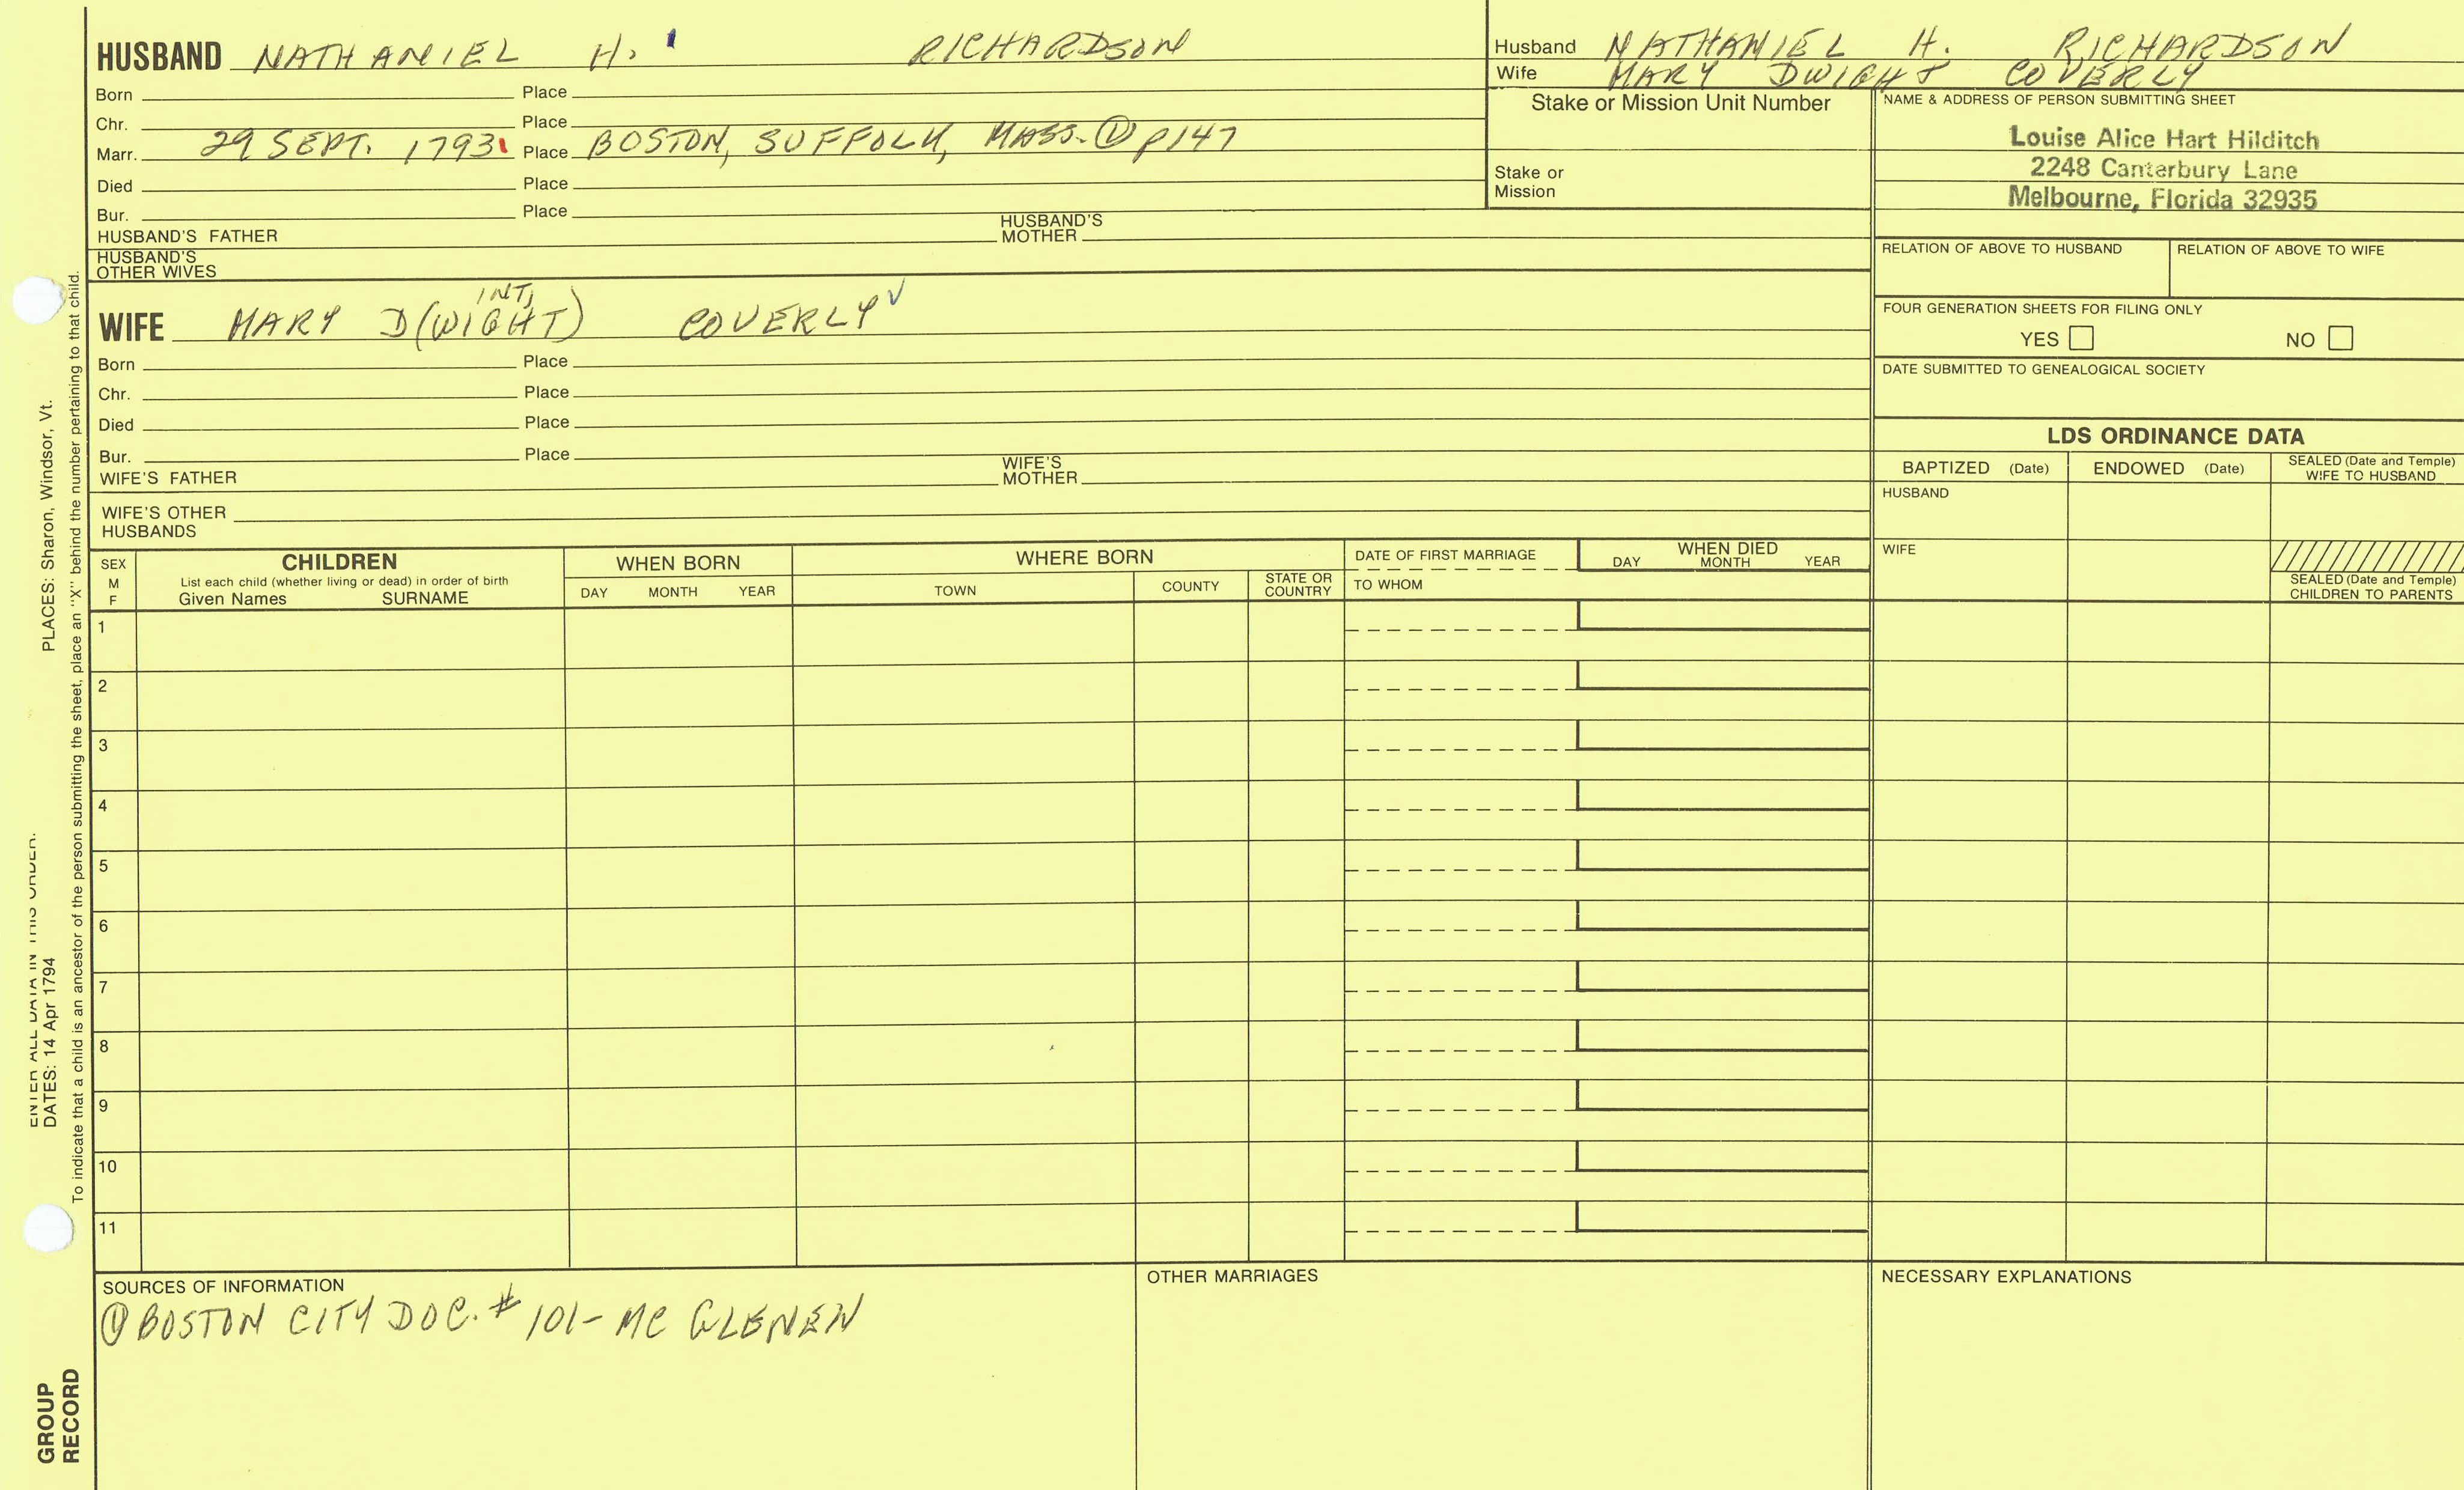 HUSBAND NATHANIEL H. RICHARDSON
Born Place
Chr. Place
Marr. 29 SEPT. 1793 Place BOSTON, SUFFOLK, MASS. ① p147
Died Place
Bur. Place
HUSBAND'S FATHER HUSBAND'S MOTHER
HUSBAND'S OTHER WIVES
INT,
WIFE MARY D(WIGHT) COVERLY
Born Place
Chr. Place
Died Place
Bur. Place
WIFE'S FATHER WIFE'S MOTHER
WIFE'S OTHER HUSBANDS
Husband NATHANIEL H. RICHARDSON
Wife MARY DWIGHT COVERLY
Stake or Mission Unit Number
Stake or
Mission
NAME & ADDRESS OF PERSON SUBMITTING SHEET
Louise Alice Hart Hilditch
2248 Canterbury Lane
Melbourne, Florida 32935
RELATION OF ABOVE TO HUSBAND RELATION OF ABOVE TO WIFE
FOUR GENERATION SHEETS FOR FILING ONLY
YES NO
DATE SUBMITTED TO GENEALOGICAL SOCIETY
LDS ORDINANCE DATA
BAPTIZED (Date) ENDOWED (Date) SEALED (Date and Temple) WIFE TO HUSBAND
HUSBAND
WIFE
SEALED (Date and Temple)
CHILDREN TO PARENTS
SEX M F
CHILDREN
List each child (whether living or dead) in order of birth
Given Names SURNAME
WHEN BORN
DAY MONTH YEAR
WHERE BORN
TOWN COUNTY STATE OR COUNTRY
DATE OF FIRST MARRIAGE
TO WHOM
WHEN DIED
DAY MONTH YEAR
1
2
3
4
5
6
7
8
9
10
11
SOURCES OF INFORMATION
① BOSTON CITY DOC. # 101- MC GLENEN
OTHER MARRIAGES
NECESSARY EXPLANATIONS
ENTER ALL DATA IN THIS ORDER:
DATES: 14 Apr 1794 PLACES: Sharon, Windsor, Vt.
To indicate that a child is an ancestor of the person submitting the sheet, place an "X" behind the number pertaining to that child.
GROUP
RECORD